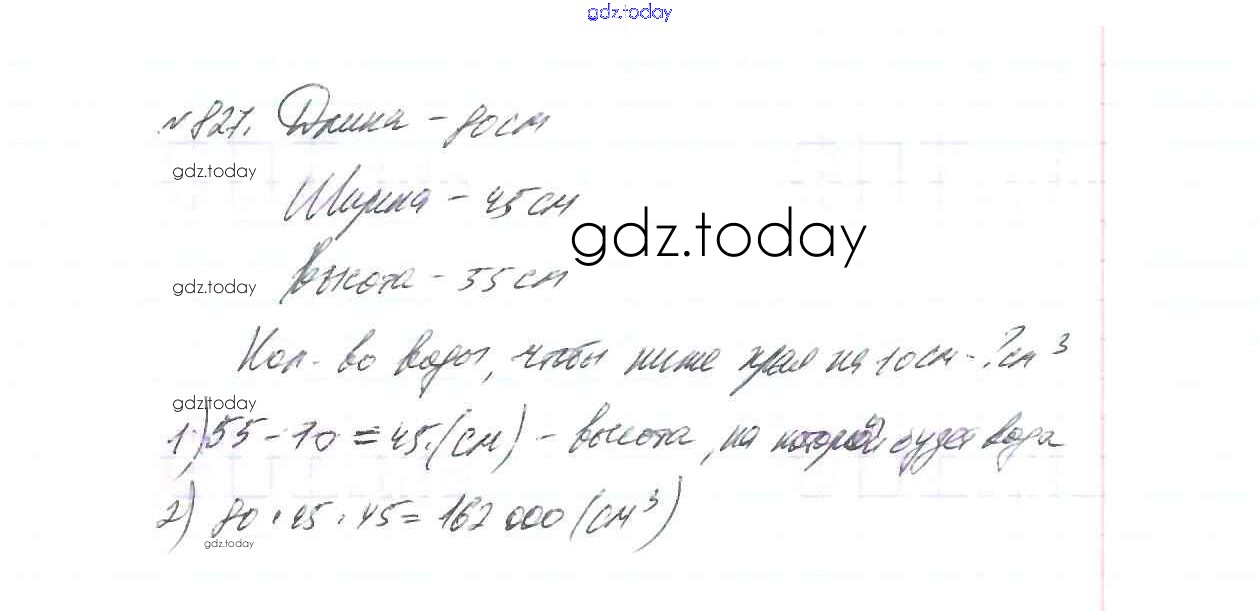 gdz.today
№827. Длина - 80 см
gdz.today
Ширина - 45 см
gdz.today
gdz.today
Высота - 55 см
Кол-во воды, чтобы ниже края на 10 см - ? см³
gdz.today
1) 55 - 10 = 45 (см) - высота, на которой будет вода
2) 80 · 45 · 45 = 162 000 (см³)
gdz.today